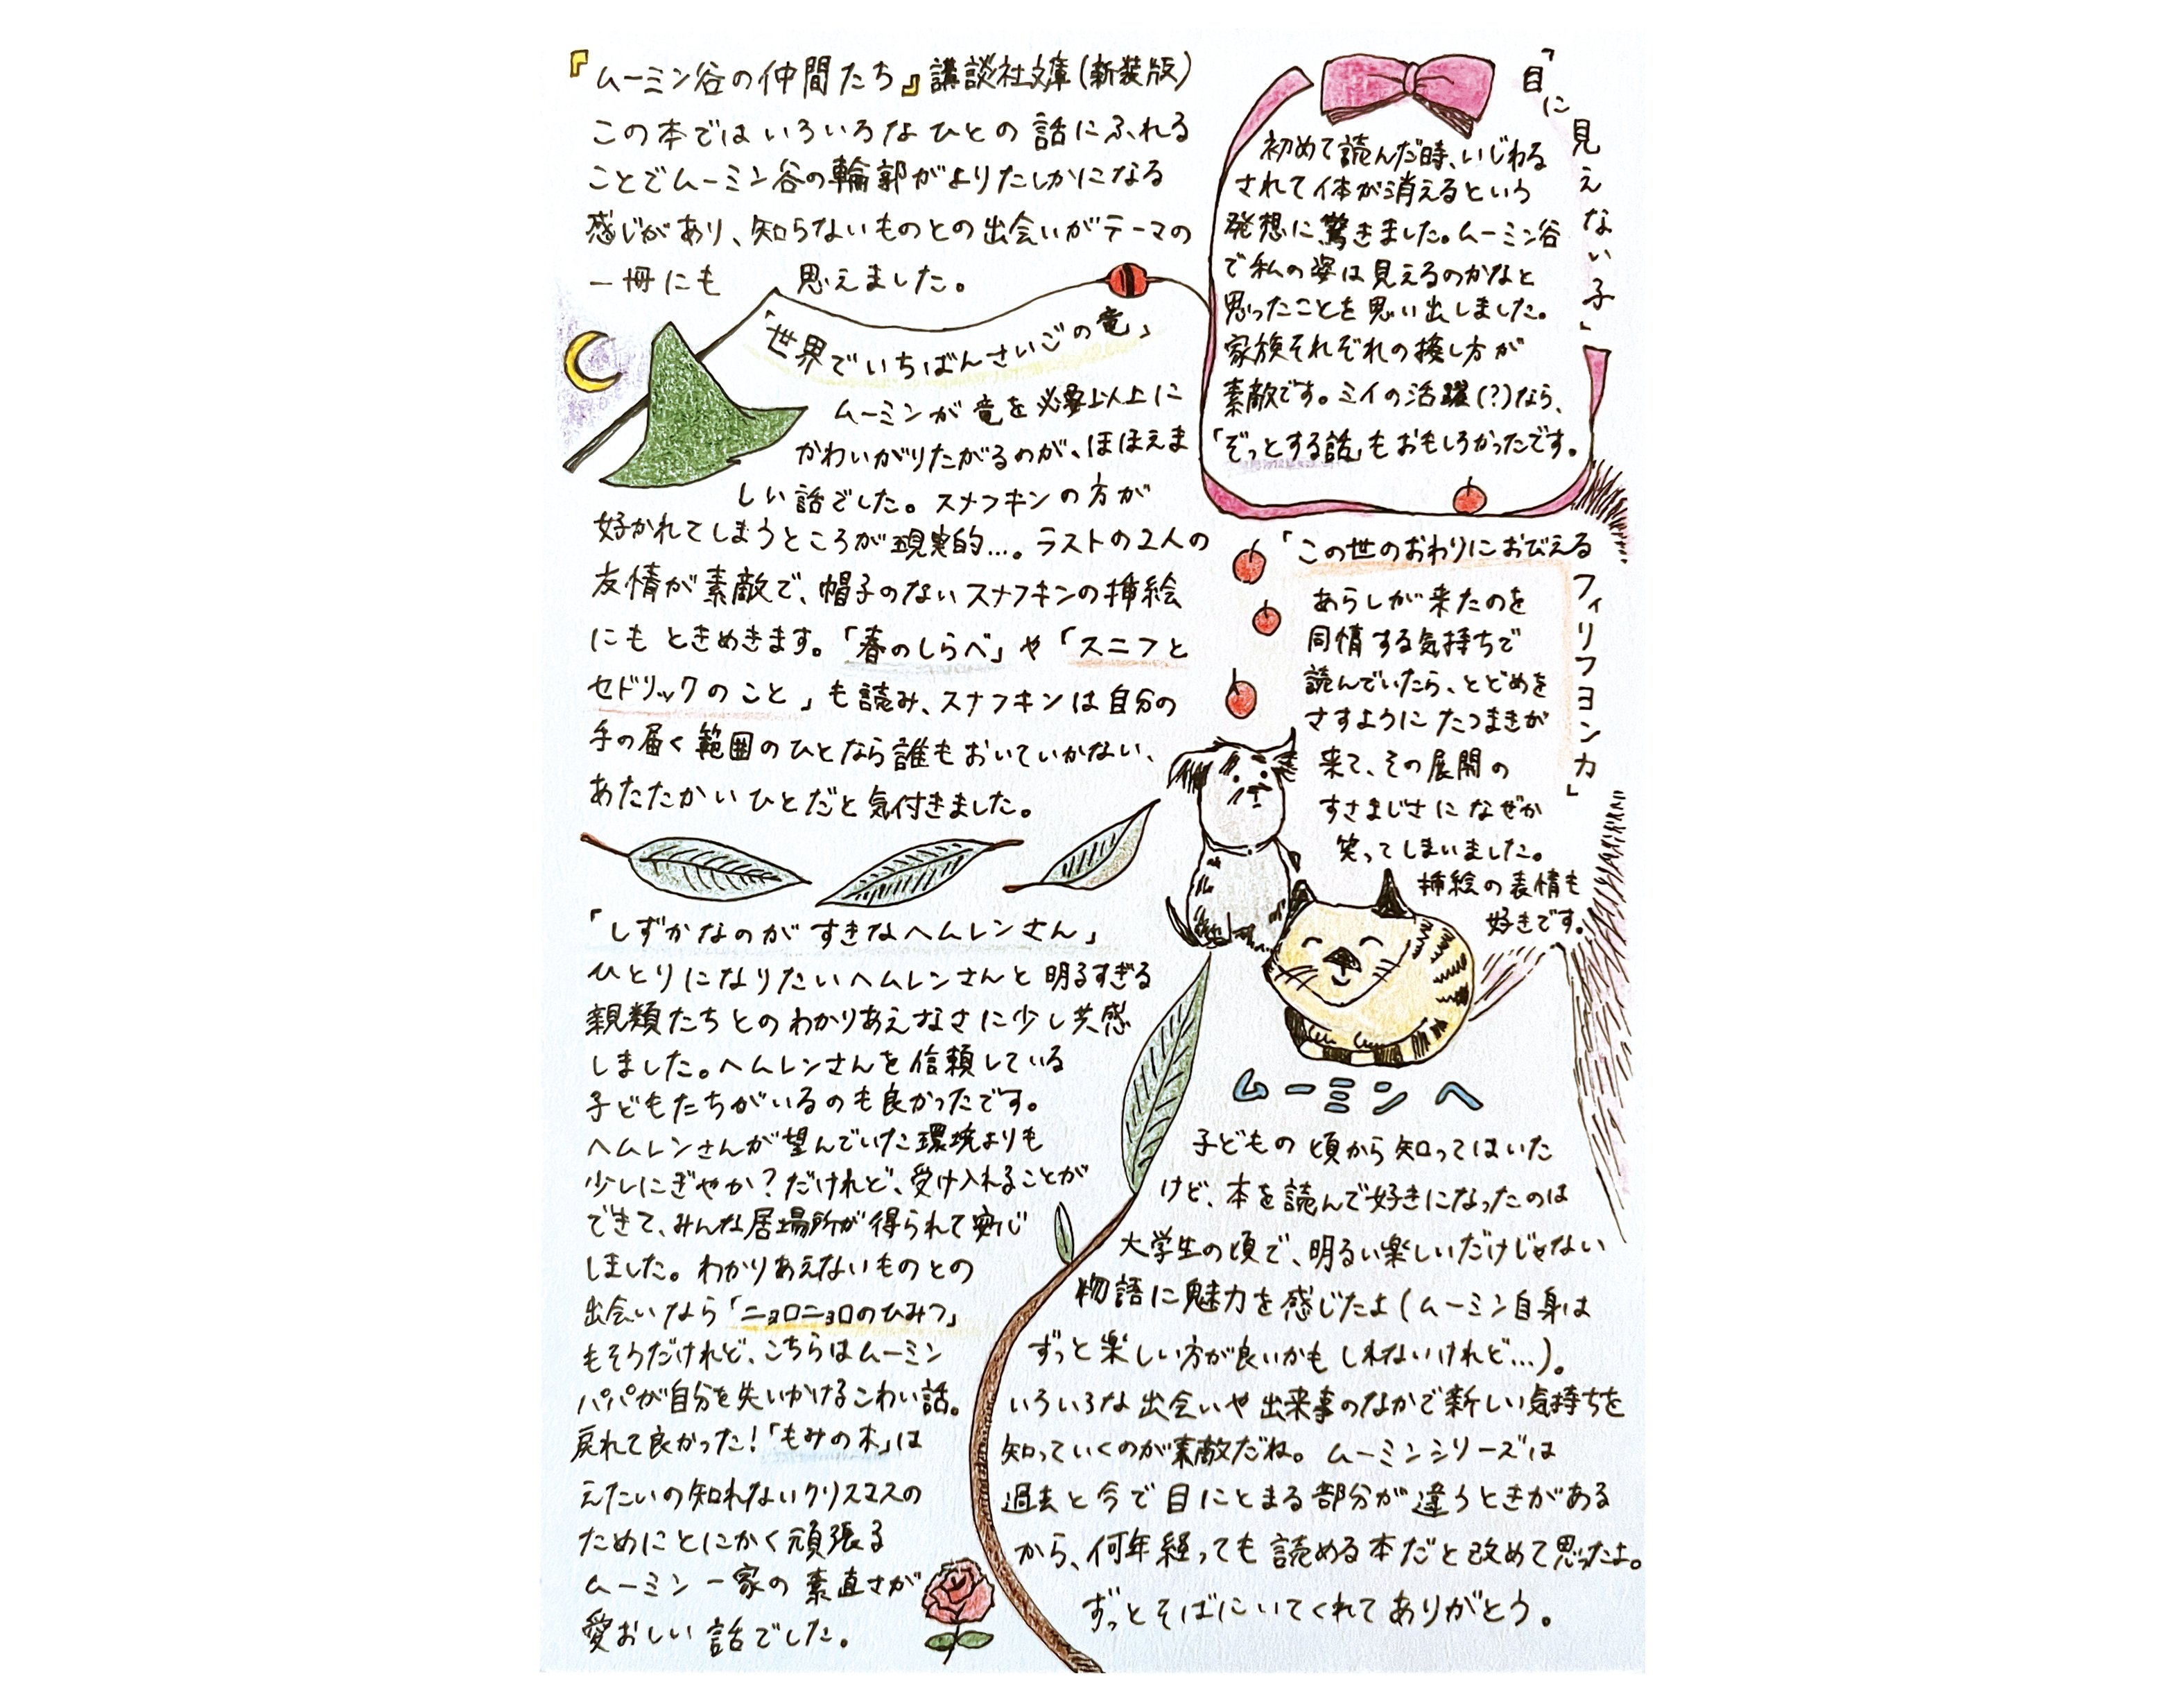 『ムーミン谷の仲間たち』講談社文庫(新装版)
この本ではいろいろなひとの話にふれる
ことでムーミン谷の輪郭がよりたしかになる
感じがあり、知らないものとの出会いがテーマの
一冊にも 思えました。
「世界でいちばんさいごの竜」
ムーミンが竜を必要以上に
かわいがりたがるのが、ほほえま
しい話でした。スナフキンの方が
好かれてしまうところが現実的…。ラストの2人の
友情が素敵で、帽子のないスナフキンの挿絵
にもときめきます。「春のしらべ」や「スニフと
セドリックのこと」も読み、スナフキンは自分の
手の届く範囲のひとなら誰もおいていかない、
あたたかいひとだと気付きました。
「しずかなのがすきなヘムレンさん」
ひとりになりたいヘムレンさんと明るすぎる
親類たちとのわかりあえなさに少し共感
しました。ヘムレンさんを信頼している
子どもたちがいるのも良かったです。
ヘムレンさんが望んでいた環境よりも
少しにぎやか?だけれど、受け入れることが
できて、みんな居場所が得られて安心
しました。わかりあえないものとの
出会いなら「ニョロニョロのひみつ」
もそうだけれど、こちらはムーミン
パパが自分を失いかけるこわい話。
戻れて良かった!「もみの木」は
えたいの知れないクリスマスの
ためにとにかく頑張る
ムーミン一家の素直さが
愛おしい話でした。
「目に見えない子」
初めて読んだ時、いじわる
されて体が消えるという
発想に驚きました。ムーミン谷
で私の姿は見えるのかなと
思ったことを思い出しました。
家族それぞれの接し方が
素敵です。ミイの活躍(?)なら、
「ぞっとする話」もおもしろかったです。
「この世のおわりにおびえる
フィリフヨンカ」
あらしが来たのを
同情する気持ちで
読んでいたら、とどめを
さすようにたつまきが
来て、その展開の
すさまじさになぜか
笑ってしまいました。
挿絵の表情も
好きです。
ムーミンへ
子どもの頃から知ってはいた
けど、本を読んで好きになったのは
大学生の頃で、明るい楽しいだけじゃない
物語に魅力を感じたよ(ムーミン自身は
ずっと楽しい方が良いかもしれないけれど…)。
いろいろな出会いや出来事のなかで新しい気持ちを
知っていくのが素敵だね。ムーミンシリーズは
過去と今で目にとまる部分が違うときがある
から、何年経っても読める本だと改めて思ったよ。
ずっとそばにいてくれてありがとう。